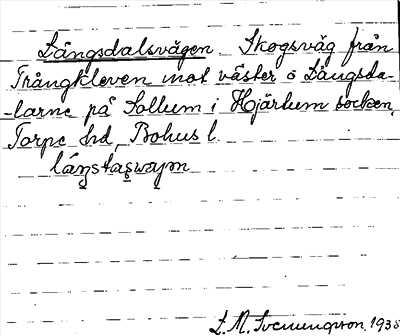 Långsdalsvägen. Skogsväg från
Trångkleven mot väster o Långsda-
-larne på Sollum i Hjärtum socken,
Torpe hd, Bohus l.
E. M. Svenungson 193